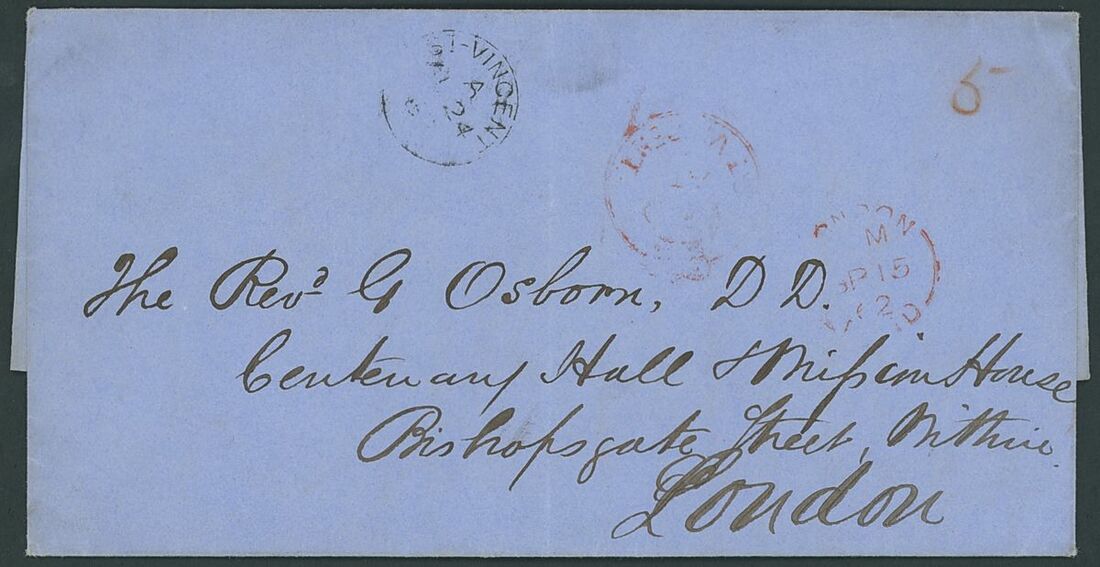 ST-VINCENT
A
24
5
LONDON
M
SP 15
62
PAID
The Revd G Osborn, D D.
Centenary Hall & Mission House
Bishopsgate Street, Within
London